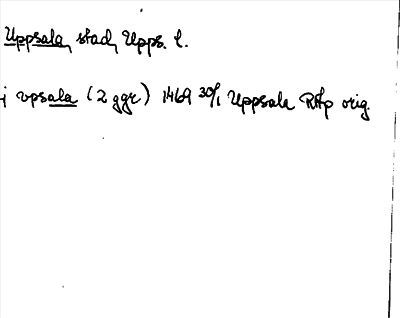 Uppsala, stad, Upps. l.
i vpsala (2 ggr) 1469 30/1 Uppsala RAp orig.